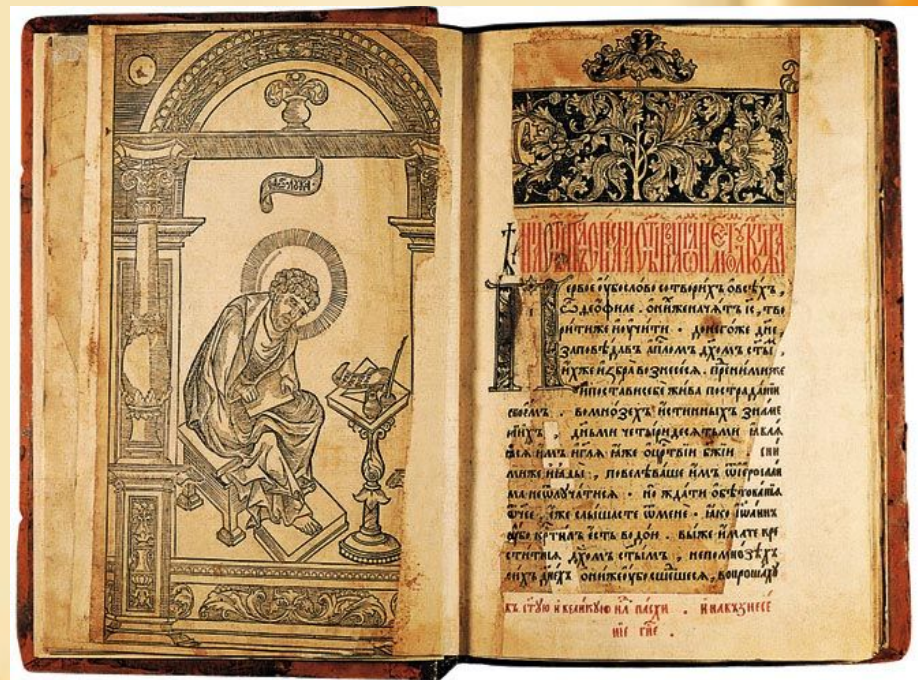 Первое оубо слово сотворихъ о всѣхъ,
ѽ деѻфиле. о ниже начятъ іс, тво
рити же и оучити. до негоже дне,
заповѣдавъ апⷭломъ дх҃омъ ст҃ы,
ихже избра вознесеся. пред ними же
и постави себе жива по страданіи
своемъ. во мнозѣхъ истинныхъ знаме
ниихъ. дньми четыридесятьми ꙗвлѧ
ꙗсѧ имъ и гл҃ѧ ꙗже о цр҃ствіи бж҃іи. с ни
ми же и ꙗды, повелѣваше имъ ѿ иерⷭоли
ма не ѿлучатисѧ. но ждати обѣтованїѧ
ѿчее, еже слышасте ѿ мене. ꙗко іѡаннъ
оубо крⷭтилъ есть водою. вы же имате кре
ститисѧ дх҃омъ ст҃ымъ, не по мнозѣхъ
сихъ дн҃ехъ они же оубо сшешесѧ, вопрошахꙋ
въ ст҃ꙋю и великꙋю нлⷣ пасхи. и на възнесе
ніе гн҃е.